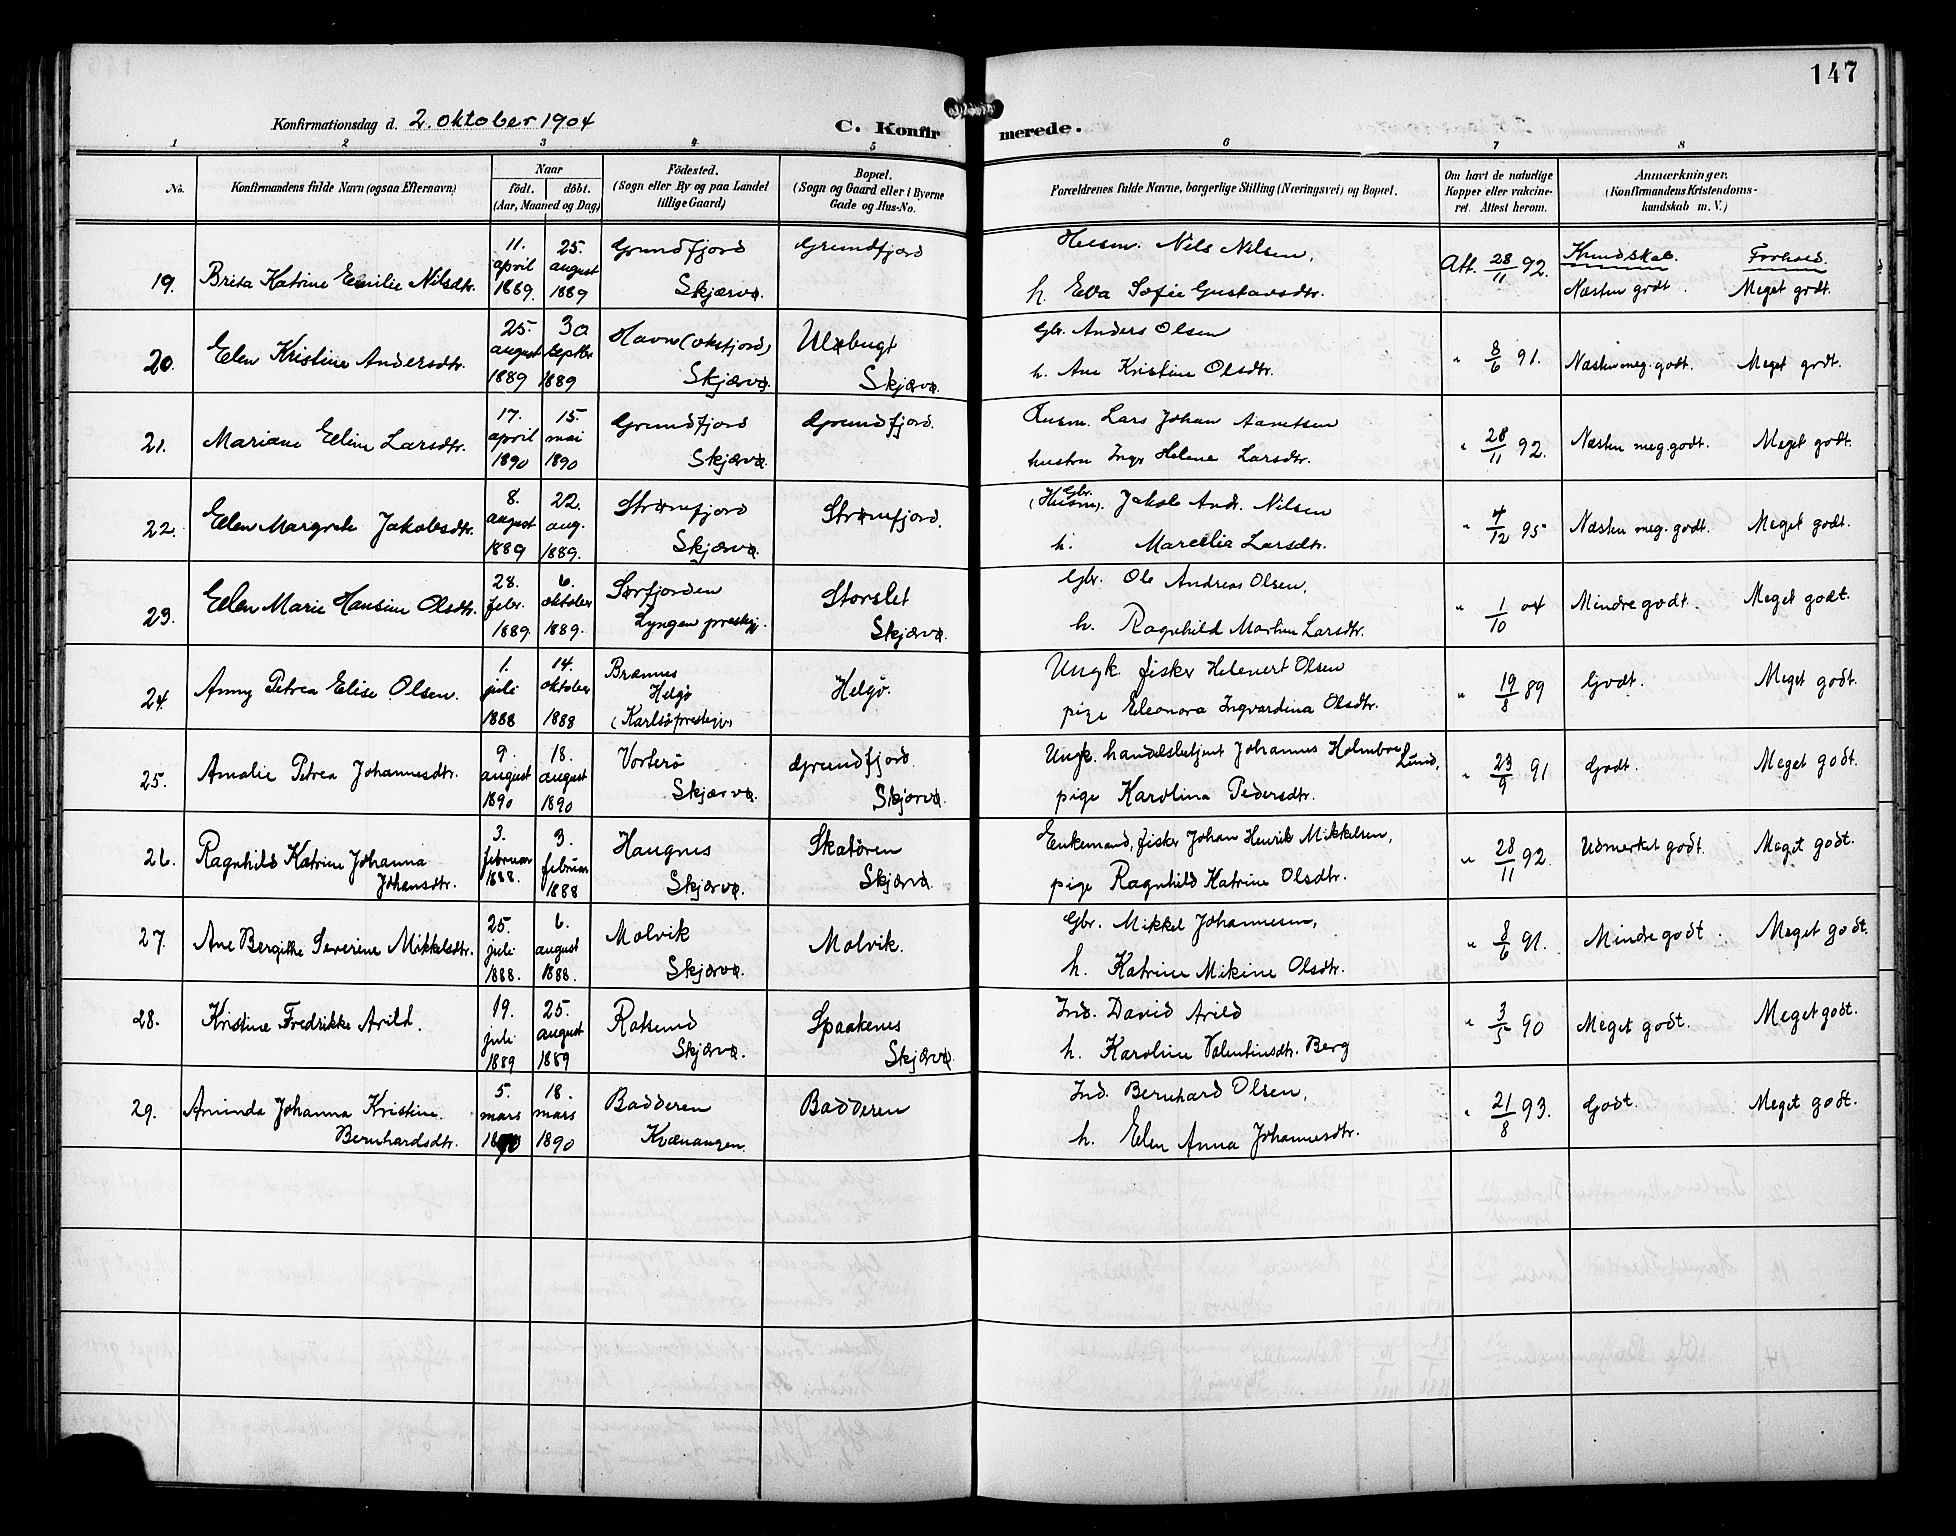 147
Konfirmationsdag d. 2. oktober 1904
C. Konfirmerede.
1 2 3 4 5 6 7 8
No.
Konfirmandens fulde Navn (ogsaa Efternavn)
Naar
födt. döbt.
(Aar, Maaned og Dag)
Födested.
(Sogn eller By og paa Landet
tillige Gaard)
Bopæl.
(Sogn og Gaard eller i Byerne
Gade og Hus-No.
Forældrenes fulde Navne, borgerlige Stilling (Næringsvei) og Bopæl.
Om havt de naturlige
Kopper eller vakcine-
ret. Attest herom.
Anmærkninger,
(Konfirmandens Kristendoms-
kundskab m. V.)
Kundskab. Forhold.
19. Brita Katrine Emilie Nilsdtr.
11. april 1889.
25. august 1889
Grundfjord
Skjærvø.
Grundfjord
Husm. Nils Nilsen,
h. Eva Sofie Gustavsdtr.
Att. 28/11 92.
Næsten godt. Meget godt.
20. Elen Kristine Andersdtr.
25. august 1889
30 septbr 1889
Havn (oksfjord)
Skjærvø.
Uløbugt
Skjærvø.
Gbr. Anders Olsen
h. Ane Kristine Olsdtr.
" 8/6 91.
Næsten meg. godt. Meget godt.
21. Mariane Eline Larsdtr.
17. april 1890
15. mai 1890
Grundfjord
Skjærvø.
Grundfjord.
Husm. Lars Johan
hustru Inger Helene Larsdtr.
" 28/11 92.
Næsten meg. godt. Meget godt.
22. Elen Margrete Jakobsdtr.
8. august 1889
22. aug. 1889.
Straumfjord
Skjærvø.
Straumfjord.
Gbr.
(Husm). Jakob Andr. Nilsen
h. Marselia Larsdtr.
" 4/12 95
Næsten meg. godt. Meget godt.
23. Elen Marie Hansine Olsdtr.
28. febr. 1889.
6. oktober 1889.
Sørfjorden
Lyngen prestgj.
Storslet
Skjærvø.
Gbr. Ole Andreas Olsen,
h. Ragnhild Martine Larsdtr.
" 1/10 04
Mindre godt. Meget godt.
24. Anny Petrea Elise Olsen.
1. juli 1888
14. oktober 1888
Brannes
Helgö
(Karlsö prestegj.)
Helgö.
Ungk. fisker Helenert Olsen
pige Eleonora Ingvardina Olsdtr.
" 19/8 89
Godt. Meget godt.
25. Amalie Petrea Johannesdtr.
9. august 1890
18. august 1890
Vorterö
Skjærvø.
Grundfjord.
Skjærvø.
Ungk. handelsbetjent Johannes Holmboe Lund,
pige Karolina Pedersdtr.
" 23/9 91
Godt. Meget godt.
26. Ragnhild Katrine Johanna
Johansdtr.
3. februar 1888.
3. februar 1888
Haugnes
Skjærvø.
Skatören
Skjærvø.
Enkemand, fisker Johan Henrik Mikkelsen,
pige Ragnhild Katrine Olsdtr.
" 28/11 92.
Udmerket godt. Meget godt.
27. Ane Bergitte Severine Mikkelsdtr.
25. juli 1888.
6. august 1888.
Molvik
Skjærvø.
Molvik.
Gbr. Mikkel Johannesen,
h. Katrine Mikine Olsdtr.
" 8/6 91.
Mindre godt. Meget godt.
28. Kristine Fredrikke Arild.
19. juli 1889
25. august 1889
Rotsund
Skjærvø.
Spaakenes
Skjærvø.
Ind. David Arild
h. Karoline Valentinsdtr. Berg
" 3/5 90
Meget godt. Meget godt.
29. Aminda Johanna Kristine
Bernhardsdtr.
5. mars 1890
18. mars 1890
Badderen
Kvænangen.
Badderen
Ind. Bernhard Olsen,
h. Elen Anna Johannesdtr.
" 21/8 93.
Godt. Meget godt.